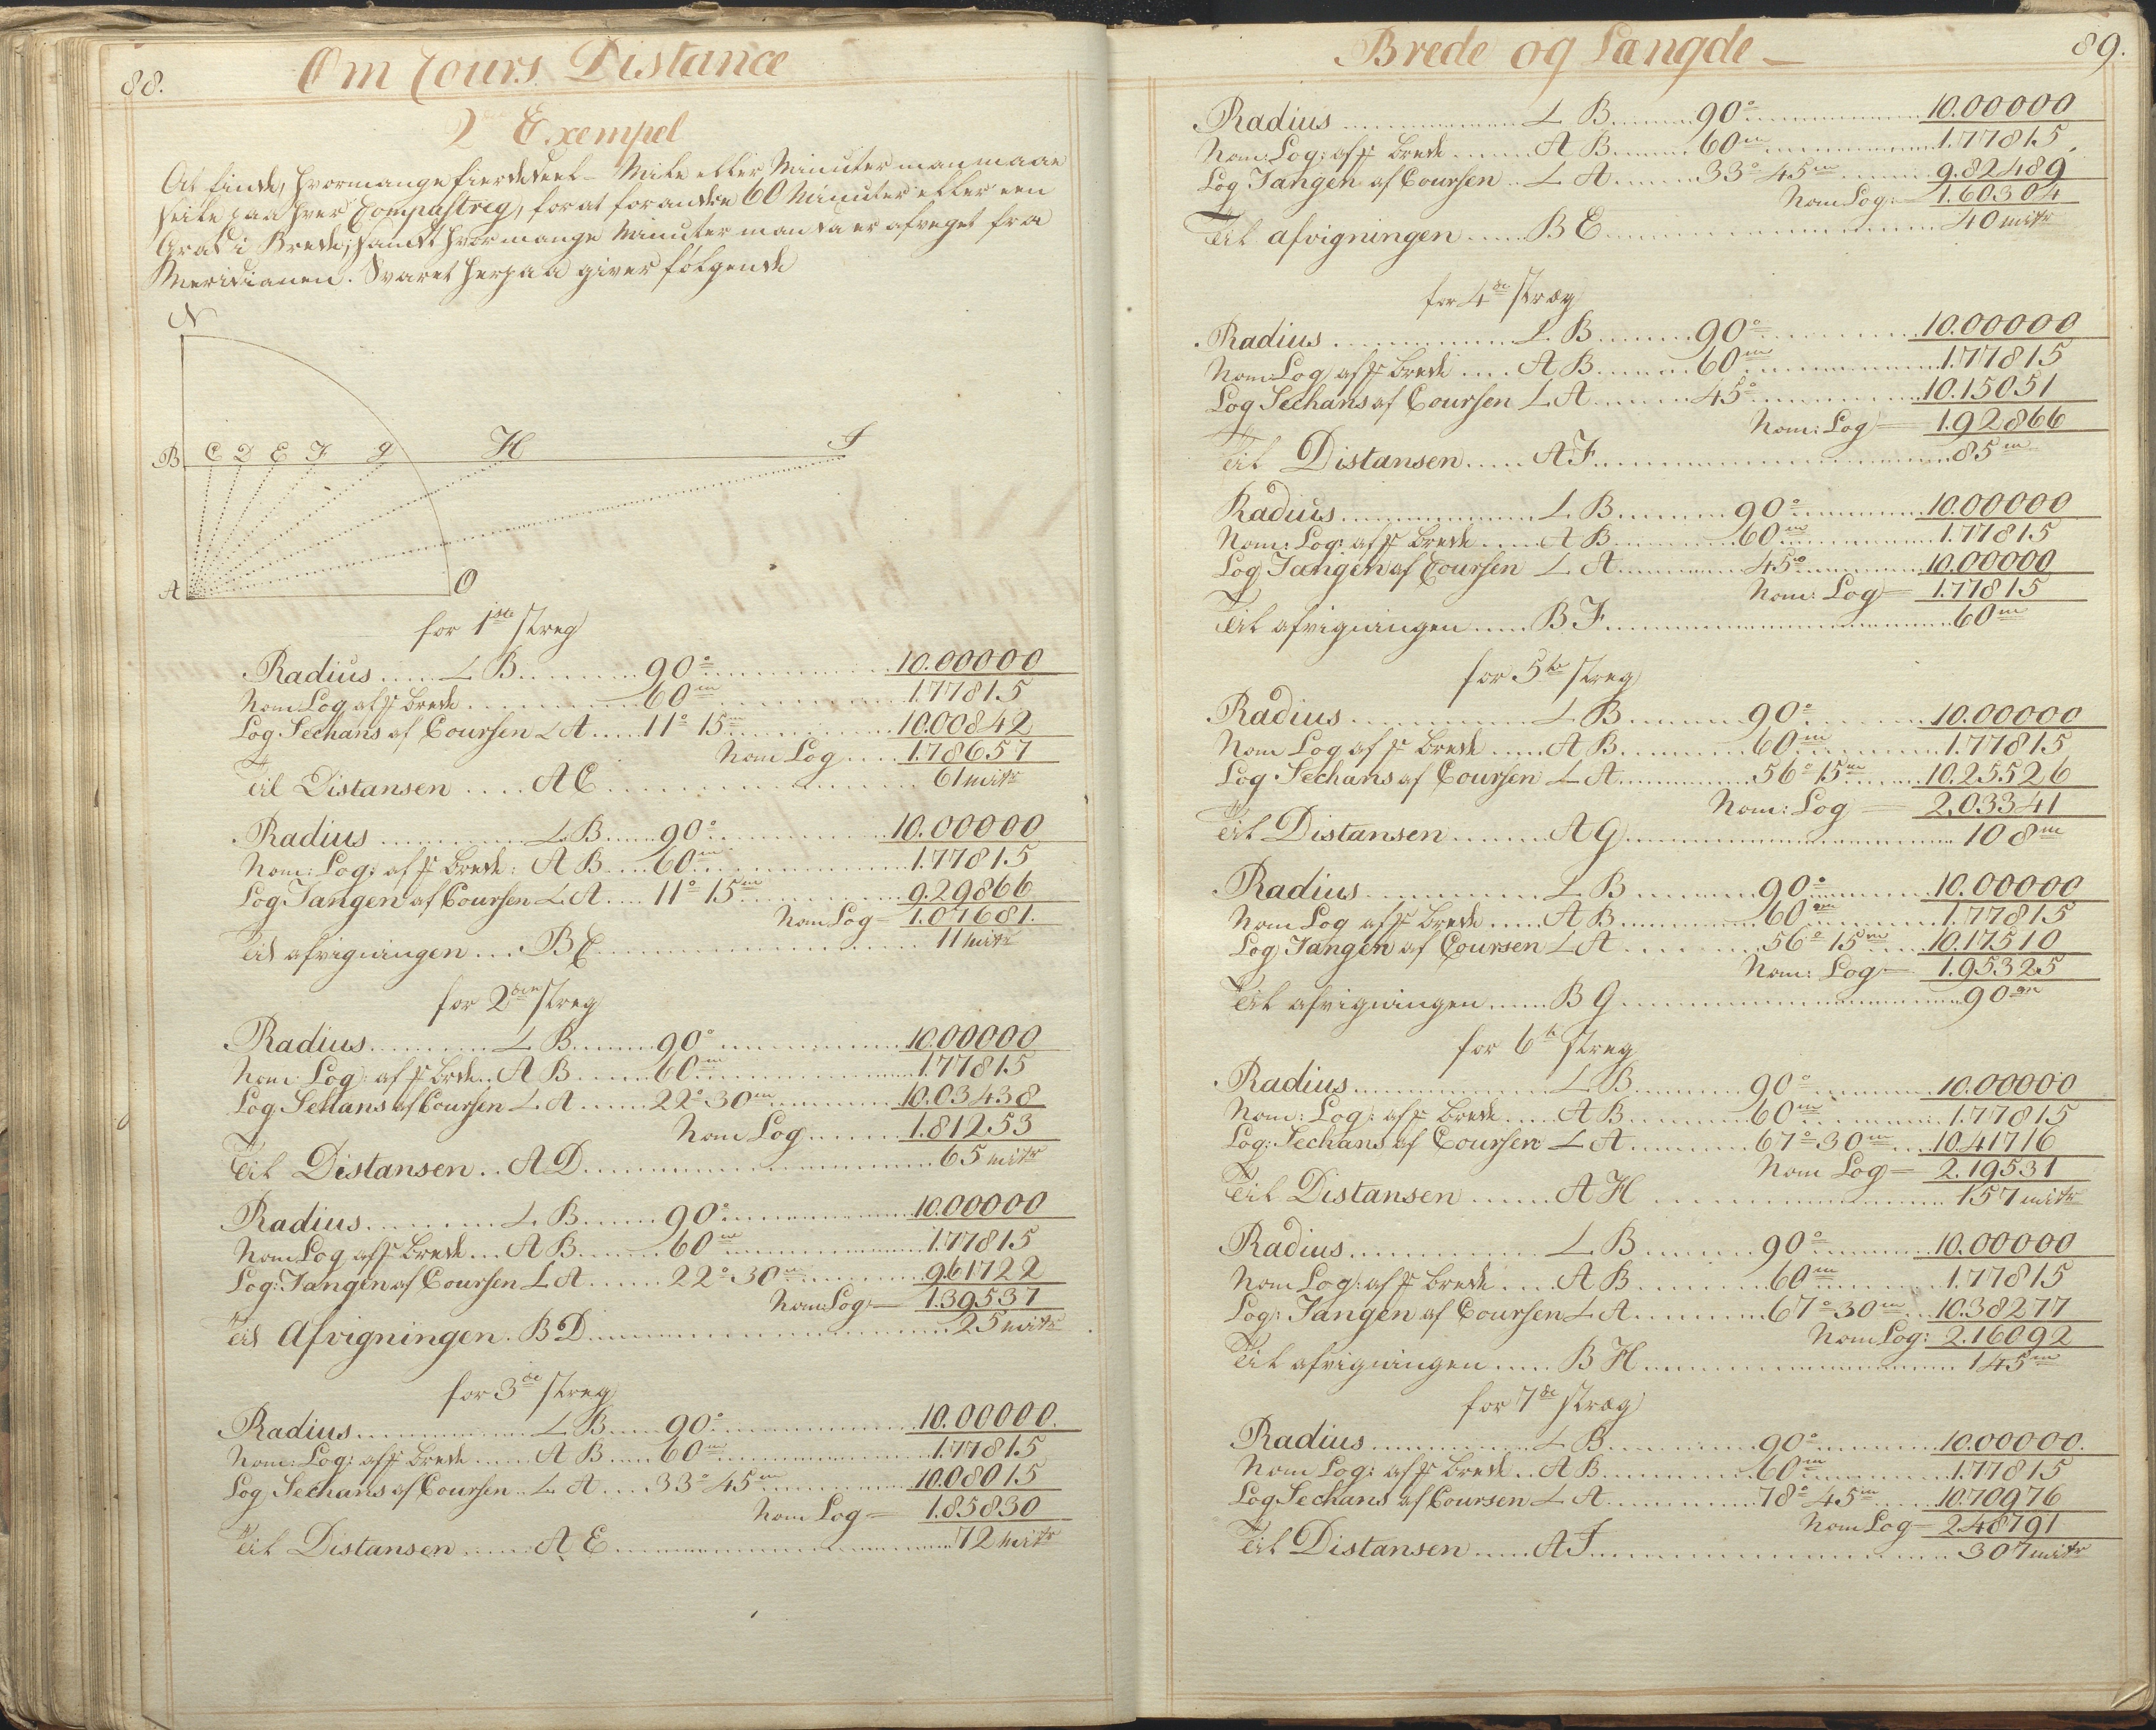 88.
Om Cours Distance
2 Exempel
At finde, hvormange fierdedeel-Mile eller Minuter man maae
seile paa hver Compasstreg, for at forandre 60 Minuter eller een
Grad i Brede; samt hvormange Minuter man da er afveget fra
Meridianen. Svaret herpaa giver følgende
N
B C D E F G H I
A O
for 1ste streg
Radius ..... L B ..... 90° ..... 10.00000
Nom Log af fr brede ..... 60m ..... 1.77815
Log Sechans af Coursen L A ..... 11° 15m ..... 10.00842
Nom Log .... 1.78657
Til Distansen .... A C ..... 61 mitr
Radius ..... L B ..... 90° ..... 10.00000
Nom: Log: af fr brede: A B .... 60m ..... 1.77815
Log Tangen af Coursen L A .... 11° 15m ..... 9.29866
Nom Log = 1.07681.
Til afvigningen ... B C ..... 11 mitr
for 2den streg
Radius ..... L B ..... 90° ..... 10.00000
Nom: Log: af fr brde.. A B ..... 60m ..... 1.77815
Log. Sehans af Coursen L A ..... 22° 30m ..... 10.03438
Nom Log ..... 1.81253
Til Distansen .. A D ..... 65 mitr
Radius ..... L B ..... 90° ..... 10.00000
Nom Log af fr brede ... A B ..... 60m ..... 1.77815
Log: Tangen af Coursen L A ..... 22° 30m ..... 9.61722
Nom: Log: = 1.39537
Til Afvigningen . B D ..... 25 mitr
for 3de streg
Radius ..... L B ..... 90° ..... 10.00000.
Nom: Log: af fr brede ..... A B ..... 60m ..... 1.77815
Log Sechans af Coursen .. L A .... 33° 45m ..... 10.08015
Nom Log = 1.85830
Til Distansen ..... A E ..... 72 mitr
Brede og Længde –
89.
Radius ..... L B ..... 90° ..... 10.00000
Nom: Log: af fr brede ..... A B ..... 60m ..... 1.77815
Log Tangen af Coursen .. L A ..... 33° 45m ..... 9.82489
Nom Log: = 1.60304
Til afvigningen ..... B E ..... 40 mitr
for 4de stræg
Radius ..... L B ..... 90° ..... 10.00000
Nom: Log af fr brede .... A B ..... 60m ..... 1.77815
Log Sechans af Coursen L A ..... 45° ..... 10.15051
Nom: Log = 1.92866
Til Distansen ..... A F ..... 85m
Radius ..... L B ..... 90° ..... 10.00000
Nom: Log: af fr brede ..... A B ..... 60m ..... 1.77815
Log Tangen af Coursen L A ..... 45° ..... 10.00000
Nom: Log = 1.77815
Til afvigningen ..... B F ..... 60m
for 5te streg
Radius ..... L B ..... 90° ..... 10.00000
Nom Log af fr brede ..... A B ..... 60m ..... 1.77815
Log Sechans af Coursen L A ..... 56° 15m ..... 10.25526
Nom: Log = 2.03341
Til Distansen ..... A G ..... 108m
Radius ..... L B ..... 90° ..... 10.00000
Nom Log af fr brede ..... A B ..... 60m ..... 1.77815
Log Tangen af Coursen L A ..... 56° 15m ..... 10.17510
Nom: Log = 1.95325
Til afvigningen ..... B G ..... 90m
for 6te streg
Radius ..... L B ..... 90° ..... 10.00000
Nom: Log: af fr brede ..... A B ..... 60m ..... 1.77815
Log: Sechans af Coursen L A ..... 67° 30m .... 10.41716
Nom Log = 2.19531
Til Distansen ..... A H ..... 157 mitr
Radius ..... L B ..... 90° ..... 10.00000
Nom Log: af fr brede .... A B ..... 60m ..... 1.77815
Log: Tangen af Coursen L A ..... 67° 30m ... 10.38277
Nom Log: 2.16092
Til afvigningen ..... B H ..... 145m
for 7de stræg
Radius ..... L B ..... 90° ..... 10.00000.
Nom Log: af fr brede .. A B ..... 60m ..... 1.77815
Log Sechans af Coursen L A ..... 78° 45m ..... 10.70976
Nom Log = 2.48791
Til Distansen ..... A I ..... 307 mitr